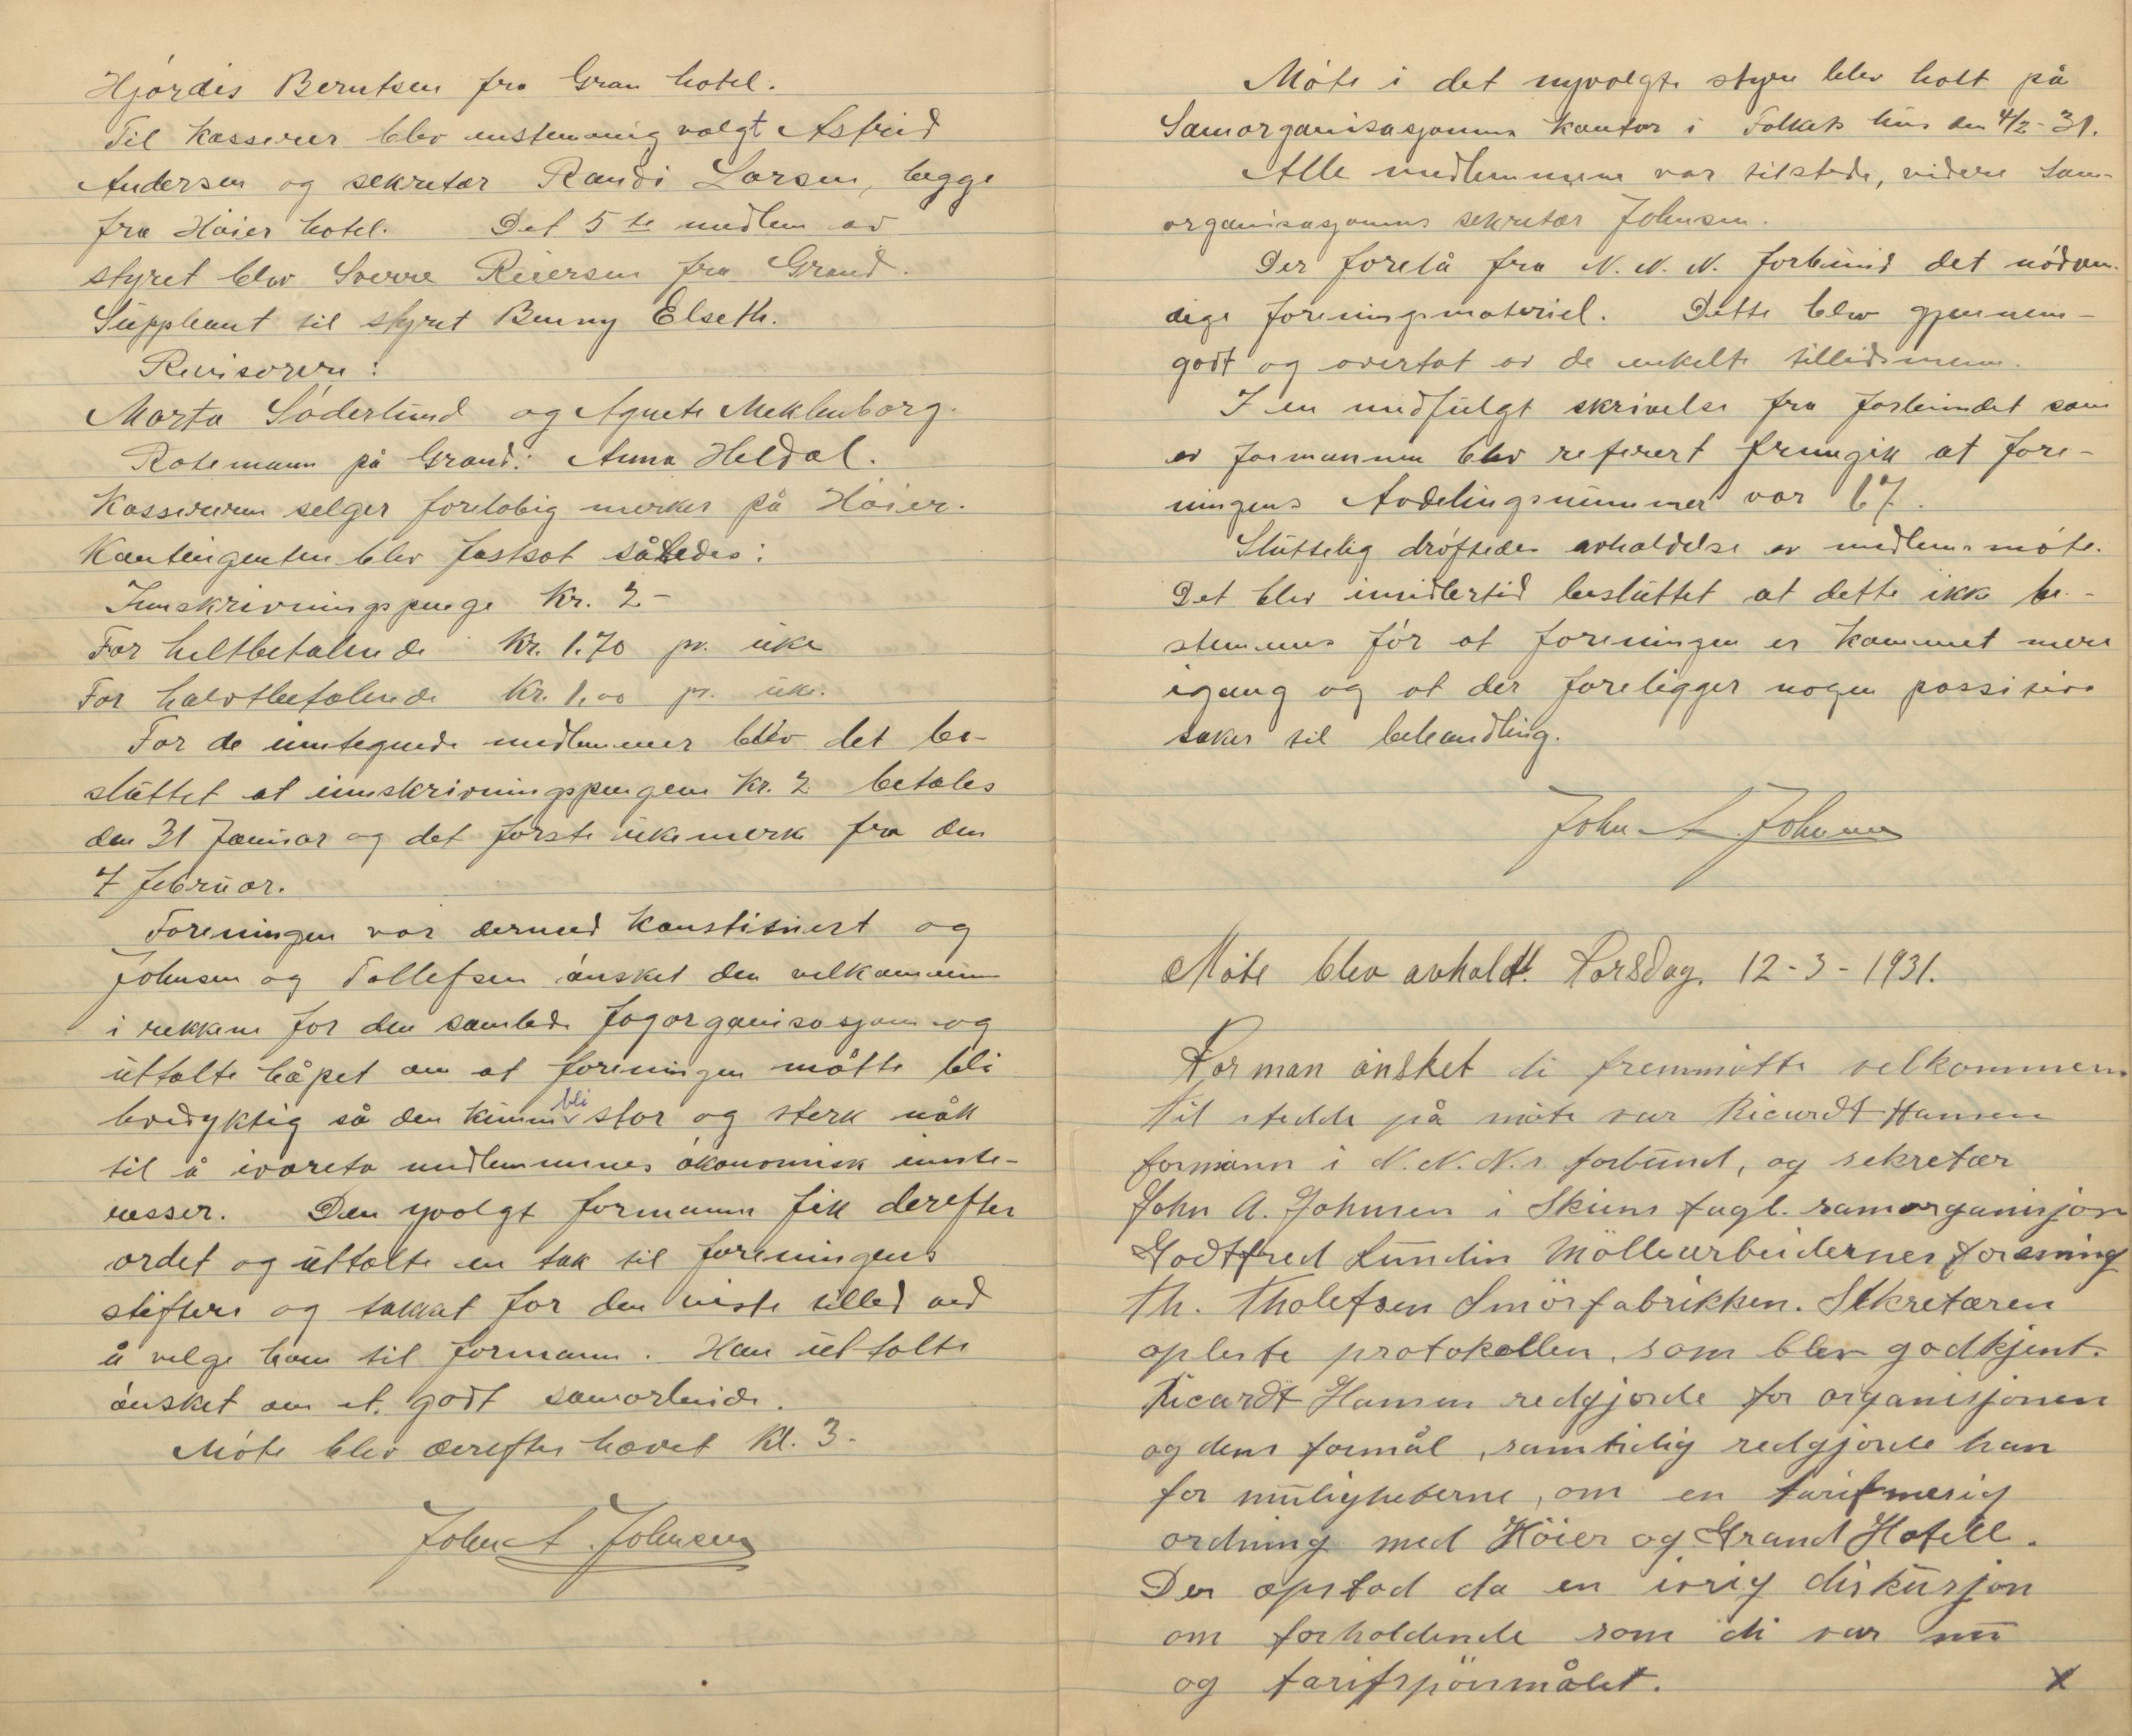 Hjørdis Berntsen fra Gran hotel.
Til kasserer blev enstemmig valgt Astrid
Andersen og sekretær Randi Larsen, begge
fra Høier hotel. Det 5te medlem av
styret blev Sverre Reiersen fra Grand.
Suppleant til styret Benny Elseth.
Revisorere:
Marta Söderlund og Agnete Meklenborg.
Rodemann på Grand: Anna Heldal.
Kassereren selger foreløbig merker på Høier.
Kontingenten blev fastsat således:
Innskrivningspenge Kr. 2-
For heltbetalende Kr. 1.70 pr. uke
For halvtbetalende Kr. 1.00 pr. uke.
For de inntegnede medlemmer blev det be-
sluttet at innskrivningspengene Kr. 2 betales
den 31 Januar og det første ukemerke fra den
7 februar.
Foreningen var dermed konstituert og
Johnsen og Tollefsen ønsket den velkommen
i rekkene for den samlede fagorganisasjon og
uttalte håpet om at foreningen måtte bli
bli
livdyktig så den kunne stor og sterk nåk
til å ivareta medlemmenes økonomisk innte-
resser. Den yvalgt formann fik derefter
ordet og uttalte en tak til foreningens
stiftere og takkat for den viste tillid ved
å velge ham til formann. Han uttalte
ønsket om et godt samarbeide.
Møte blev derefter hævet Kl. 3-
John A. Johnsen
Møte i det nyvalgte styre blev holt på
Samorganisasjonens kontor i Folkets hus den 4/2-31.
Alle medlemmene var tilstede, videre Sam-
organisasjonens sekretær Johnsen.
Der forelå fra N. N. N. forbund det nødven-
dige foreningsmateriel. Dette blev gjennem-
gått og overtat av de enkelte tillidsmenn.
I en medfulgt skrivelse fra forbundet som
av formannen blev referert fremgik at fore-
ningens Avdelingsnummer var 67.
Sluttelig drøftedes avholdelse av medlemsmøte.
Det blev imidlertid besluttet at dette ikke be-
stemmes før at foreningen er kommet mere
igang og at der foreligger nogen possitive
saker til behandling.
John A. Johnsen
Møte blev avholdt Torsdag. 12-3-1931.
Forman ønsket di fremmøtte velkommen
Til stedde på møte var Ricardt Hansen
formann i N.N.N.s forbund, og sekretær
John A. Johnsen i Skiens fagl. samorganisjon
Godtfred Lundin Möllearbeidernes forening
Th. Tholefsen Smörfabrikken. Sekretæren
opleste protokollen, som blev godkjent.
Ricardt Hansen redgjorde for organisjonen
og dens formål, samtidig redgjorde han
for muligheterne, om en tarifmesig
ordning med Höier og Grand Hotell.
Der opstod da en ivrig diskusjon
om forholdende som di var nu
og tarifspörsmålet. x